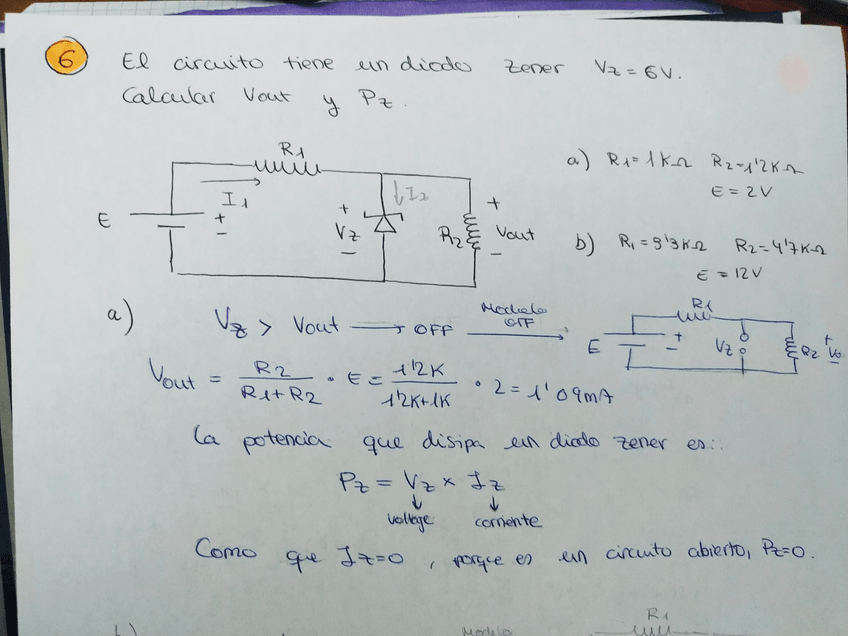 6 El circuito tiene un diodo zener Vz = 6V.
Calcular Vout y Pz.
R1
I1
E
+
-
+
Vz
-
I2
R2
+
Vout
-
a) R1 = 1KΩ R2 = 1'2KΩ
E = 2V
b) R1 = 3'3KΩ R2 = 4'7KΩ
E = 12V
a) Vz > Vout → OFF Modelo OFF →
R1
E
+
-
Vz
R2
+
Vo
-
Vout = R2 / R1+R2 · E = 1'2K / 1'2K+1K · 2 = 1'09mA
La potencia que disipa un diodo zener es:.
Pz = Vz x Iz
voltage corriente
Como que Iz=0, porque es un circuito abierto, Pz=0.
Modelo
R1